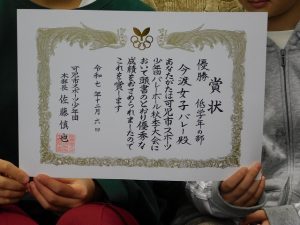 賞状
優勝
低学年の部
今渡女子バレー殿
あなたがたは可児市スポーツ
少年団バレーボール秋季大会に
おいて頭書のとおり優秀な
成績をおさめられましたので
これを賞します
令和七年十二月六日
可児市スポーツ少年団
本部長 佐藤慎也